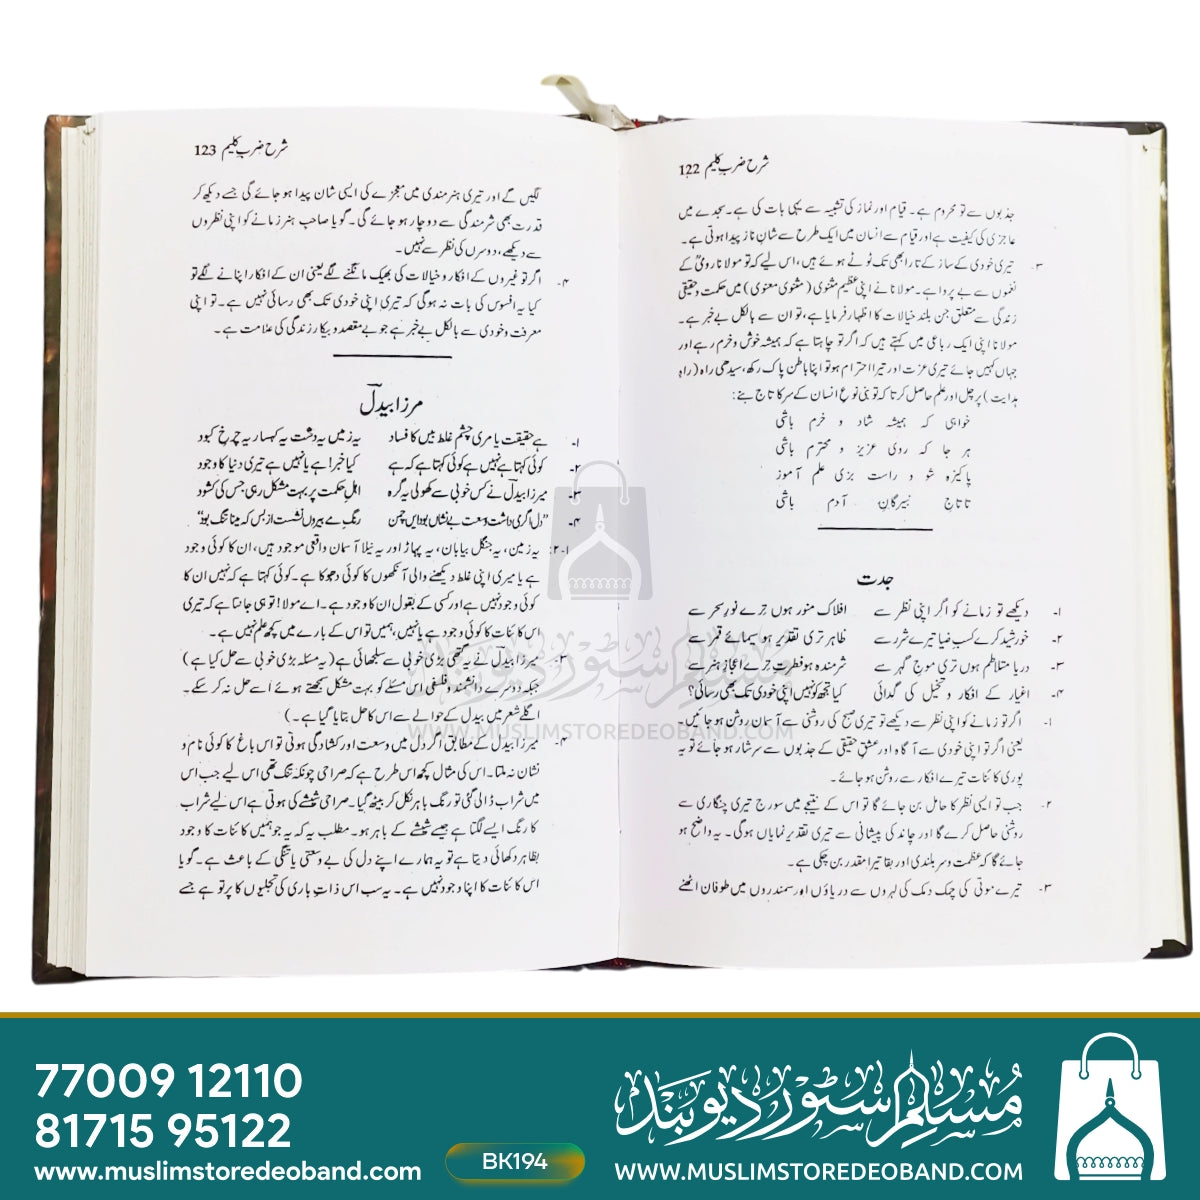 شرح ضرب کلیم 122
جذبوں سے تو محروم ہے۔ قیام اور نماز کی تشبیہ سے یہی بات کی ہے۔ سجدے میں
عاجزی کی کیفیت ہے اور قیام سے انسان میں ایک طرح سے شانِ ناز پیدا ہوتی ہے۔
۳۔ تیری خودی کے ساز کے تار ابھی تک ٹوٹے ہوئے ہیں، اس لیے کہ تو مولانا رومیؒ کے
نغموں سے بے پروا ہے۔ مولانا نے اپنی عظیم مثنوی (مثنوی معنوی) میں حکمت و حقیقی
زندگی سے متعلق جن بلند خیالات کا اظہار فرمایا ہے، تو ان سے بالکل بے خبر ہے۔
مولانا اپنی ایک رباعی میں کہتے ہیں کہ اگر تو چاہتا ہے کہ ہمیشہ خوش و خرم رہے اور
جہاں کہیں جائے تیری عزت اور تیرا احترام ہو تو اپنا باطن پاک رکھ، سیدھی راہ (راہِ
ہدایت) پر چل اور علم حاصل کر تا کہ تو بنی نوع انسان کے سر کا تاج بنے:
خواہی کہ ہمیشہ شاد و خرم باشی
ہر جا کہ روی عزیز و محترم باشی
پاکیزہ شو و راست بزی علم آموز
تا تاجِ نبیرگانِ آدم باشی
جدت
۱۔ دیکھے تو زمانے کو اگر اپنی نظر سے افلاک منور ہوں ترے نورِ سحر سے
۲۔ خورشید کرے کسبِ ضیا تیرے شرر سے ظاہر تری تقدیر ہو سیمائے قمر سے
۳۔ دریا متلاطم ہوں تری موجِ گہر سے شرمندہ ہو فطرت ترے اعجازِ ہنر سے
۴۔ اغیار کے افکار و تخیل کی گدائی کیا تجھ کو نہیں اپنی خودی تک بھی رسائی؟
۱۔ اگر تو زمانے کو اپنی نظر سے دیکھے تو تیری صبح کی روشنی سے آسمان روشن ہو جائیں۔
یعنی اگر تو اپنی خودی سے آگاہ اور عشقِ حقیقی کے جذبوں سے سرشار ہو جائے تو یہ
پوری کائنات تیرے افکار سے روشن ہو جائے۔
۲۔ جب تو ایسی نظر کا حامل بن جائے گا تو اس کے نتیجے میں سورج تیری چنگاری سے
روشنی حاصل کرے گا اور چاند کی پیشانی سے تیری تقدیر نمایاں ہوگی۔ یہ واضح ہو
جائے گا کہ عظمت و سربلندی اور بقا تیرا مقدر بن چکی ہے۔
۳۔ تیرے موتی کی چمک دمک کی لہروں سے دریاؤں اور سمندروں میں طوفان اٹھنے
شرح ضرب کلیم 123
لگیں گے اور تیری ہنرمندی میں معجزے کی ایسی شان پیدا ہو جائے گی جسے دیکھ کر
قدرت بھی شرمندگی سے دوچار ہو جائے گی۔ گویا صاحب ہنر زمانے کو اپنی نظروں
سے دیکھے، دوسرں کی نظر سے نہیں۔
۴۔ اگر تو غیروں کے افکار و خیالات کی بھیک مانگنے لگے یعنی ان کے افکار اپنانے لگے تو
کیا یہ افسوس کی بات نہ ہوگی کہ تیری اپنی خودی تک بھی رسائی نہیں ہے۔ تو اپنی
معرفت و خودی سے بالکل بے خبر ہے جو بے مقصد و بیکار زندگی کی علامت ہے۔
مرزا بیدلؔ
۱۔ ہے حقیقت یا مری چشمِ غلط بیں کا فساد یہ زمیں یہ دشت یہ کہسار یہ چرخِ کبود
۲۔ کوئی کہتا ہے نہیں ہے کوئی کہتا ہے کہ ہے کیا خبر! ہے یا نہیں ہے تیری دنیا کا وجود
۳۔ میرزا بیدلؔ نے کس خوبی سے کھولی یہ گرہ اہلِ حکمت پر بہت مشکل رہی جس کی کشود
۴۔ "دل اگر می داشت وسعت بے نشاں بود ایں چمن رنگِ مے بیروں نشست از بس کہ مینا تنگ بود"
۱۔۲: یہ زمین، یہ جنگل بیابان، یہ پہاڑ اور یہ نیلا آسمان واقعی موجود ہیں، ان کا کوئی وجود
ہے یا میری اپنی غلط دیکھنے والی آنکھوں کا کوئی دھوکا ہے۔ کوئی کہتا ہے کہ نہیں ان کا
کوئی وجود نہیں ہے اور کسی کے بقول ان کا وجود ہے۔ اے مولا! تو ہی جانتا ہے کہ تیری
اس کائنات کا کوئی وجود ہے یا نہیں، ہمیں تو اس کے بارے میں کچھ علم نہیں ہے۔
۳۔ میرزا بیدلؔ نے یہ گتھی بڑی خوبی سے سلجھائی ہے (یہ مسئلہ بڑی خوبی سے حل کیا ہے)
جبکہ دوسرے دانشمند و فلسفی اس مسئلے کو بہت مشکل سمجھتے ہوئے اسے حل نہ کر سکے۔
اگلے شعر میں بیدل کے حوالے سے اس کا حل بتایا گیا ہے۔)
۴۔ میرزا بیدل کے مطابق اگر دل میں وسعت اور کشادگی ہوتی تو اس باغ کا کوئی نام و
نشان نہ ملتا۔ اس کی مثال کچھ اس طرح ہے کہ صراحی چونکہ تنگ تھی اس لیے جب اس
میں شراب ڈالی گئی تو رنگ باہر نکل کر بیٹھ گیا۔ صراحی شیشے کی ہوتی ہے اس لیے شراب
کا رنگ ایسے لگتا ہے جیسے شیشے کے باہر ہو۔ مطلب یہ کہ یہ جو ہمیں کائنات کا وجود
بظاہر دکھائی دیتا ہے تو یہ ہمارے اپنے دل کی بے وسعتی یا تنگی کے باعث ہے۔ گویا
اس کائنات کا اپنا وجود نہیں ہے۔ یہ سب اس ذاتِ باری کی تجلیوں کا پرتو ہے جسے
مسلم سٹور دیوبند
WWW.MUSLIMSTOREDEOBAND.COM
77009 12110
81715 95122
www.muslimstoredeoband.com
BK194
مسلم سٹور دیوبند
WWW.MUSLIMSTOREDEOBAND.COM